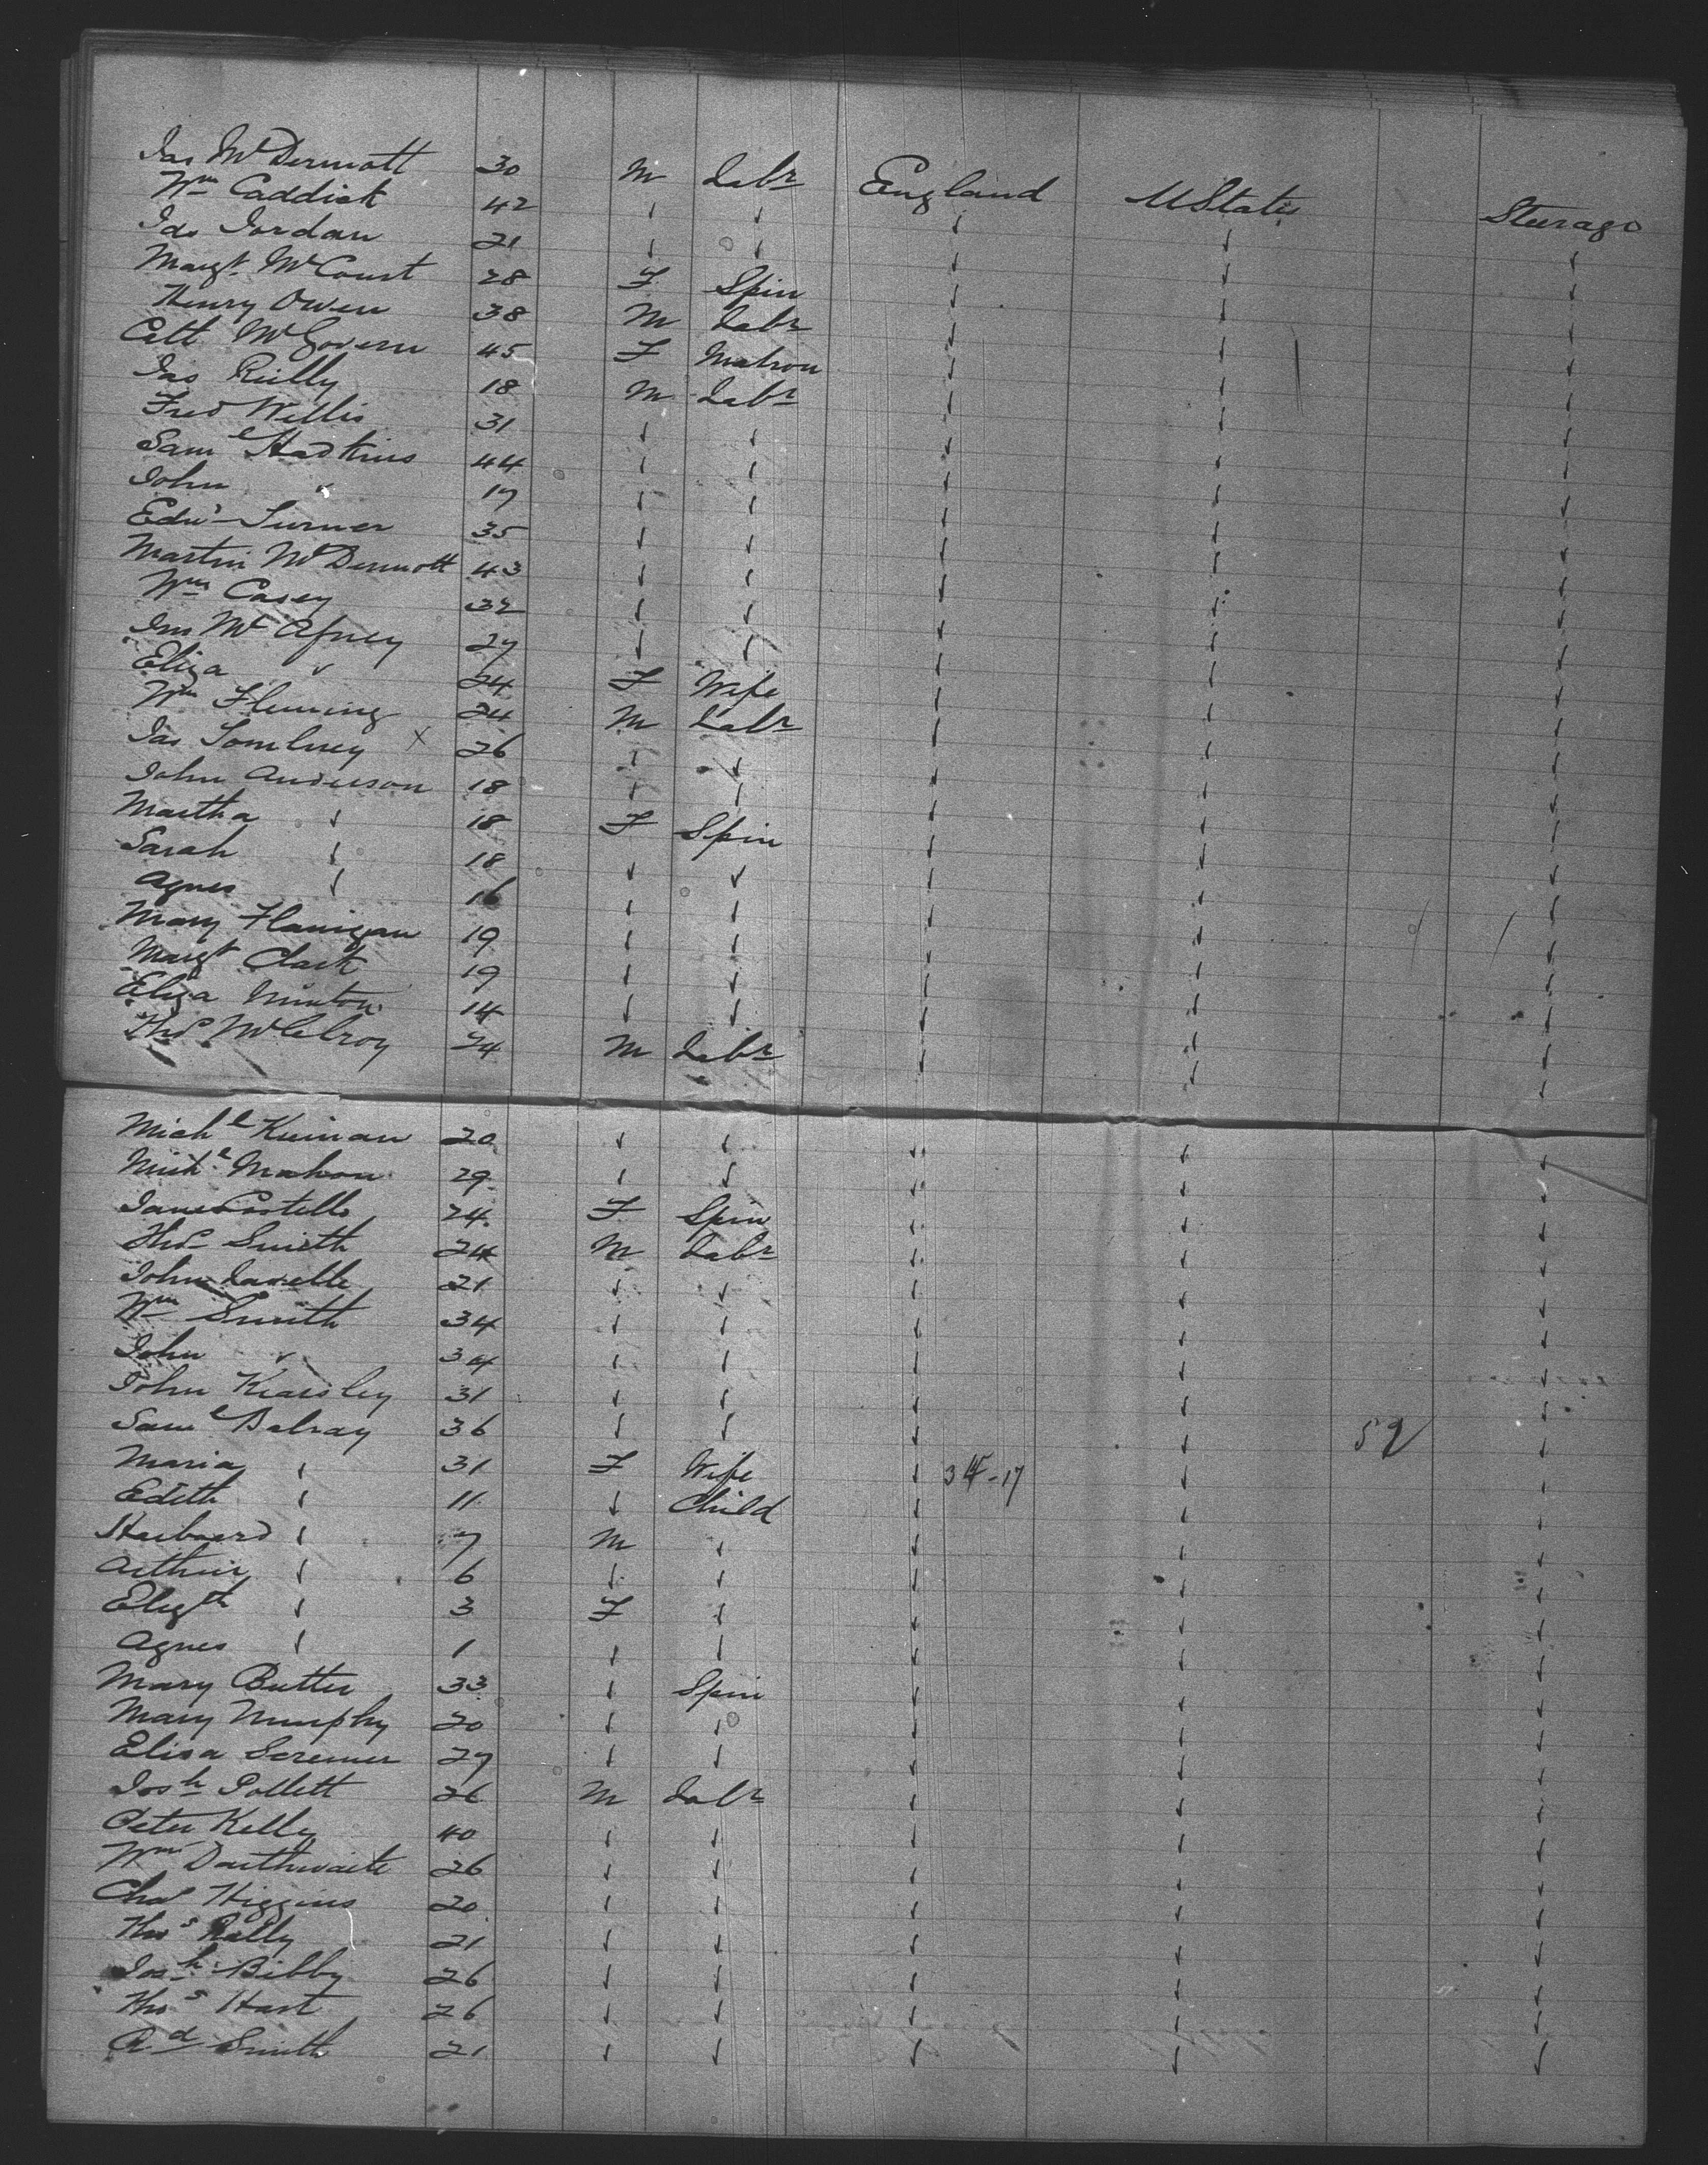 Jas McDermott 30 M Labr England UStates Steerage
Wm Caddick 42 " "
Jas Jordan 21 " "
Margt McCourt 28 F Spin
Henry Owen 38 M Labr
Cath McGovern 45 F Matron
Jas Reilly 18 M Labr
Fred Willis 31 " "
Saml Hadkins 44 " "
John " 17 " "
Edwd Turner 35 " "
Martin McDermott 43 " "
Wm Casey 32 " "
Jno McAfney 27 " "
Eliza " 24 F Wife
Wm Fleming 24 M Labr
Jas X 26 " "
John Anderson 18 " "
Martha " 18 F Spin
Sarah " 18 " "
Agnes " 16 " "
Mary Flanigan 19 " "
Margt Clark 19 " "
Eliza Minton 14 " "
Thos McElroy 24 M Labr
Michl Kiernan 20 " "
Michl Mahon 29 " "
Jane Costello 24 F Spin
Thos Smith 24 M Labr
John Lavelle 21 " "
Wm Smith 34 " "
John " 34 " "
John Kearsley 31 " "
Saml Belray 36 " " 52
Maria " 31 F Wife " 34-17
Edith " 11 " Child
Harboard " 7 M "
Arthur " 6 " "
Elizth " 3 F "
Agnes " 1 " "
Mary Butler 33 " Spin
Mary Murphy 20 " "
Elisa 27 " "
Josh Pollett 26 M Labr
Peter Kelly 40 " "
Wm Douthwaite 26 " "
Chas Higgins 20 " "
Thos Reilly 21 " "
Josh Bibby 26 " "
Thos Hart 26 " "
Rd Smith 21 " "